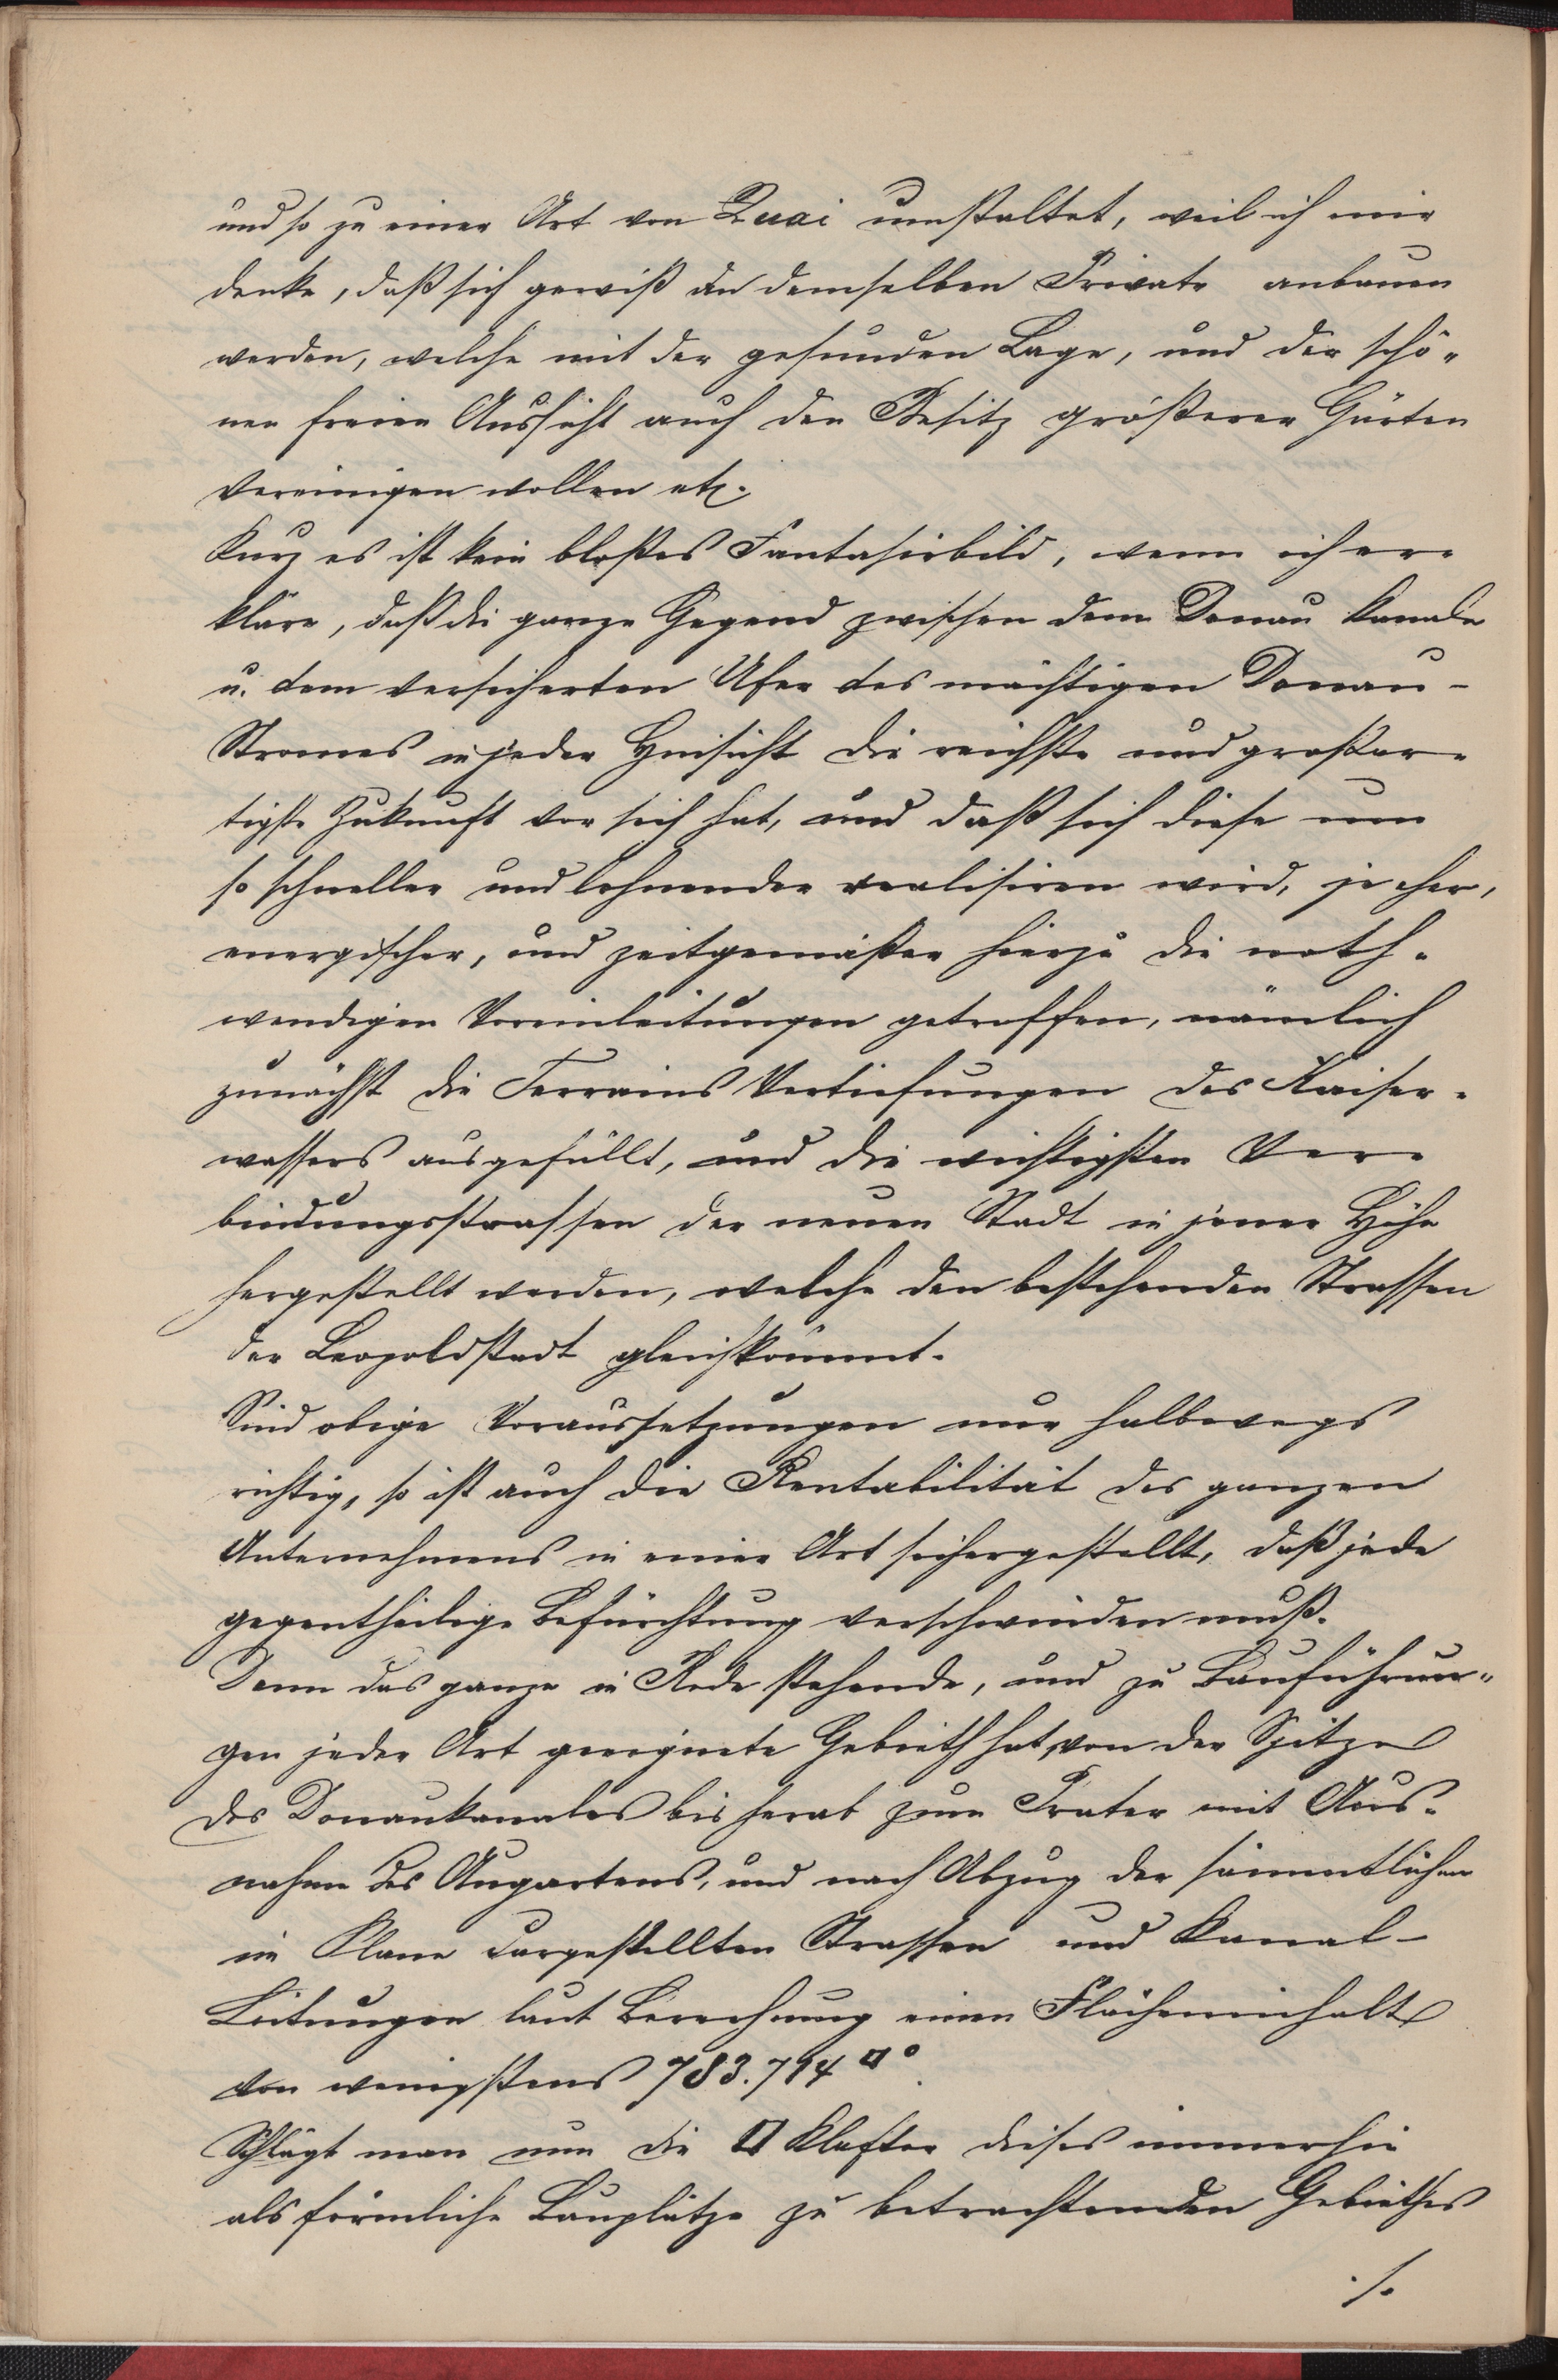 und so zu einer Art von Quai umstaltet, weil ich mir
denke, daß sich gewiß an demselben Private anbauen
werden, welche mit der gesunden Lage, und der schö-
nen freien Aussicht auch den Besitz größerer Gärten
vereinigen wollen etc.
Kurz es ist kein bloßes Fantasiebild, wenn ich er-
kläre, daß die ganze Gegend zwischen dem Donau Kanale
u. dem versicherten Ufer des mächtigen Donau-
Stromes in jeder Hinsicht die reichste und großar-
tigste Zukunft vor sich hat, und daß sich diese um
so schneller und lohnender realisiren wird, je eher,
energischer, und zeitgemäßer hierzu die noth-
wendigen Voreinleitungen getroffen, nämlich
zunächst die Terrains Vertiefungen des Kaiser-
wassers ausgefüllt, und die wichtigsten Ver-
bindungsstrassen der neuen Stadt in jener Höhe
hergestellt werden, welche den bestehenden Strassen
der Leopoldstadt gleichkömmt.
Sind obige Voraussetzungen nur halbwegs
richtig, so ist auch die Rentabilität des ganzen
Unternehmens in einer Art sichergestellt, daß jede
gegentheilige Befürchtung verschwinden muß.
Denn das ganze in Rede stehende, und zu Bauführun-
gen jeder Art geeignete Gebieth hat, von der Spitze
des Donaukanales bis herab zum Prater mit Aus-
nahme des Augartens, und nach Abzug der sämmtlichen
im Plane dargestellten Strassen und Kanal-
Leitungen laut Berechnung einen Flächeninhalt
von wenigstens 783.794 □°
Schlägt man nun die □ Klafter dieses immerhin
als förmliche Bauplätze zu betrachtenden Gebiethes
./.